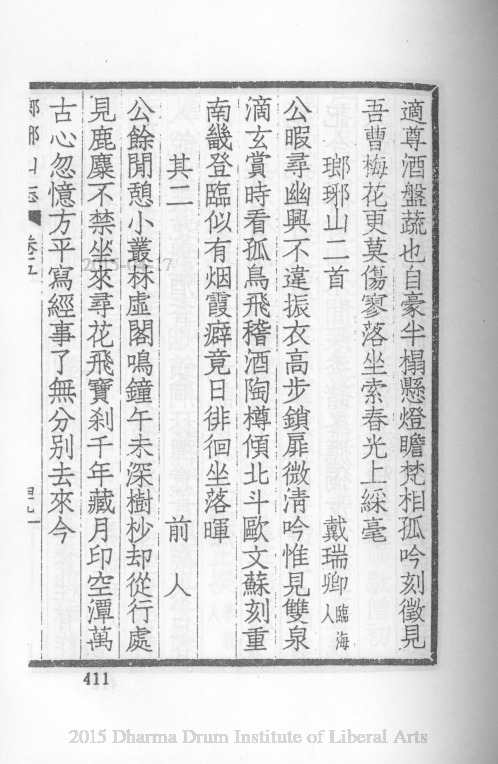 適尊酒盤蔬也自豪半榻懸燈瞻梵相孤吟刻徵見
吾曹梅花更莫傷寥落坐索春光上綵毫
瑯琊山二首 戴瑞卿臨海人
公暇尋幽興不違振衣高步鎖扉微清吟惟見雙泉
滴玄賞時看孤鳥飛稽酒陶樽傾北斗歐文蘇刻重
南畿登臨似有烟霞癖竟日徘徊坐落暉
其二 前人
公餘閒憩小叢林虛閣鳴鐘午未深樹杪却從行處
見鹿麋不禁坐來尋花飛寶刹千年藏月印空潭萬
古心忽憶方平寫經事了無分別去來今
瑯琊山志 卷五
411
2015 Dharma Drum Institute of Liberal Arts